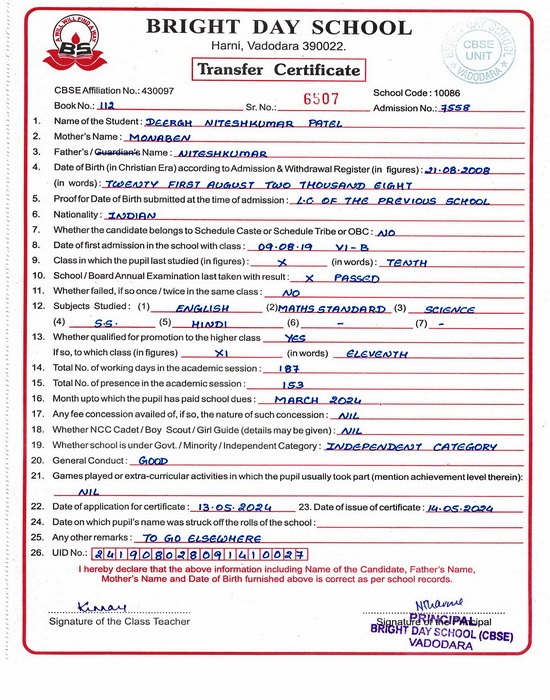 A WILL WILL FIND A WAY
BS
BRIGHT DAY SCHOOL
Harni, Vadodara 390022.
BRIGHT DAY SCHOOL
CBSE
UNIT
VADODARA
Transfer Certificate
CBSE Affiliation No.: 430097
School Code : 10086
Book No.: 112 Sr. No.: 6507 Admission No.: 7558
1. Name of the Student : DEERGH NITESHKUMAR PATEL
2. Mother's Name : MONABEN
3. Father's / Guardian's Name : NITESHKUMAR
4. Date of Birth (in Christian Era) according to Admission & Withdrawal Register (in figures) : 21.08.2008
(in words) : TWENTY FIRST AUGUST TWO THOUSAND EIGHT
5. Proof for Date of Birth submitted at the time of admission : L.C OF THE PREVIOUS SCHOOL
6. Nationality : INDIAN
7. Whether the candidate belongs to Schedule Caste or Schedule Tribe or OBC : NO
8. Date of first admission in the school with class : 09.08.19 VI-B
9. Class in which the pupil last studied (in figures) : X (in words) : TENTH
10. School / Board Annual Examination last taken with result : X PASSED
11. Whether failed, if so once / twice in the same class : NO
12. Subjects Studied : (1) ENGLISH (2) MATHS STANDARD (3) SCIENCE
(4) S.S. (5) HINDI (6) - (7) -
13. Whether qualified for promotion to the higher class YES
If so, to which class (in figures) XI (in words) ELEVENTH
14. Total No. of working days in the academic session : 187
15. Total No. of presence in the academic session : 153
16. Month upto which the pupil has paid school dues : MARCH 2024
17. Any fee concession availed of, if so, the nature of such concession : NIL
18. Whether NCC Cadet / Boy Scout / Girl Guide (details may be given) : NIL
19. Whether school is under Govt. / Minority / Independent Category : INDEPENDENT CATEGORY
20. General Conduct : GOOD
21. Games played or extra-curricular activities in which the pupil usually took part (mention achievement level therein):
NIL
22. Date of application for certificate : 13.05.2024 23. Date of issue of certificate : 14.05.2024
24. Date on which pupil's name was struck off the rolls of the school :
25. Any other remarks : TO GO ELSEWHERE
26. UID No.: 241908028091410027
I hereby declare that the above information including Name of the Candidate, Father's Name,
Mother's Name and Date of Birth furnished above is correct as per school records.
Signature of the Class Teacher Signature of the Principal
PRINCIPAL
BRIGHT DAY SCHOOL (CBSE)
VADODARA